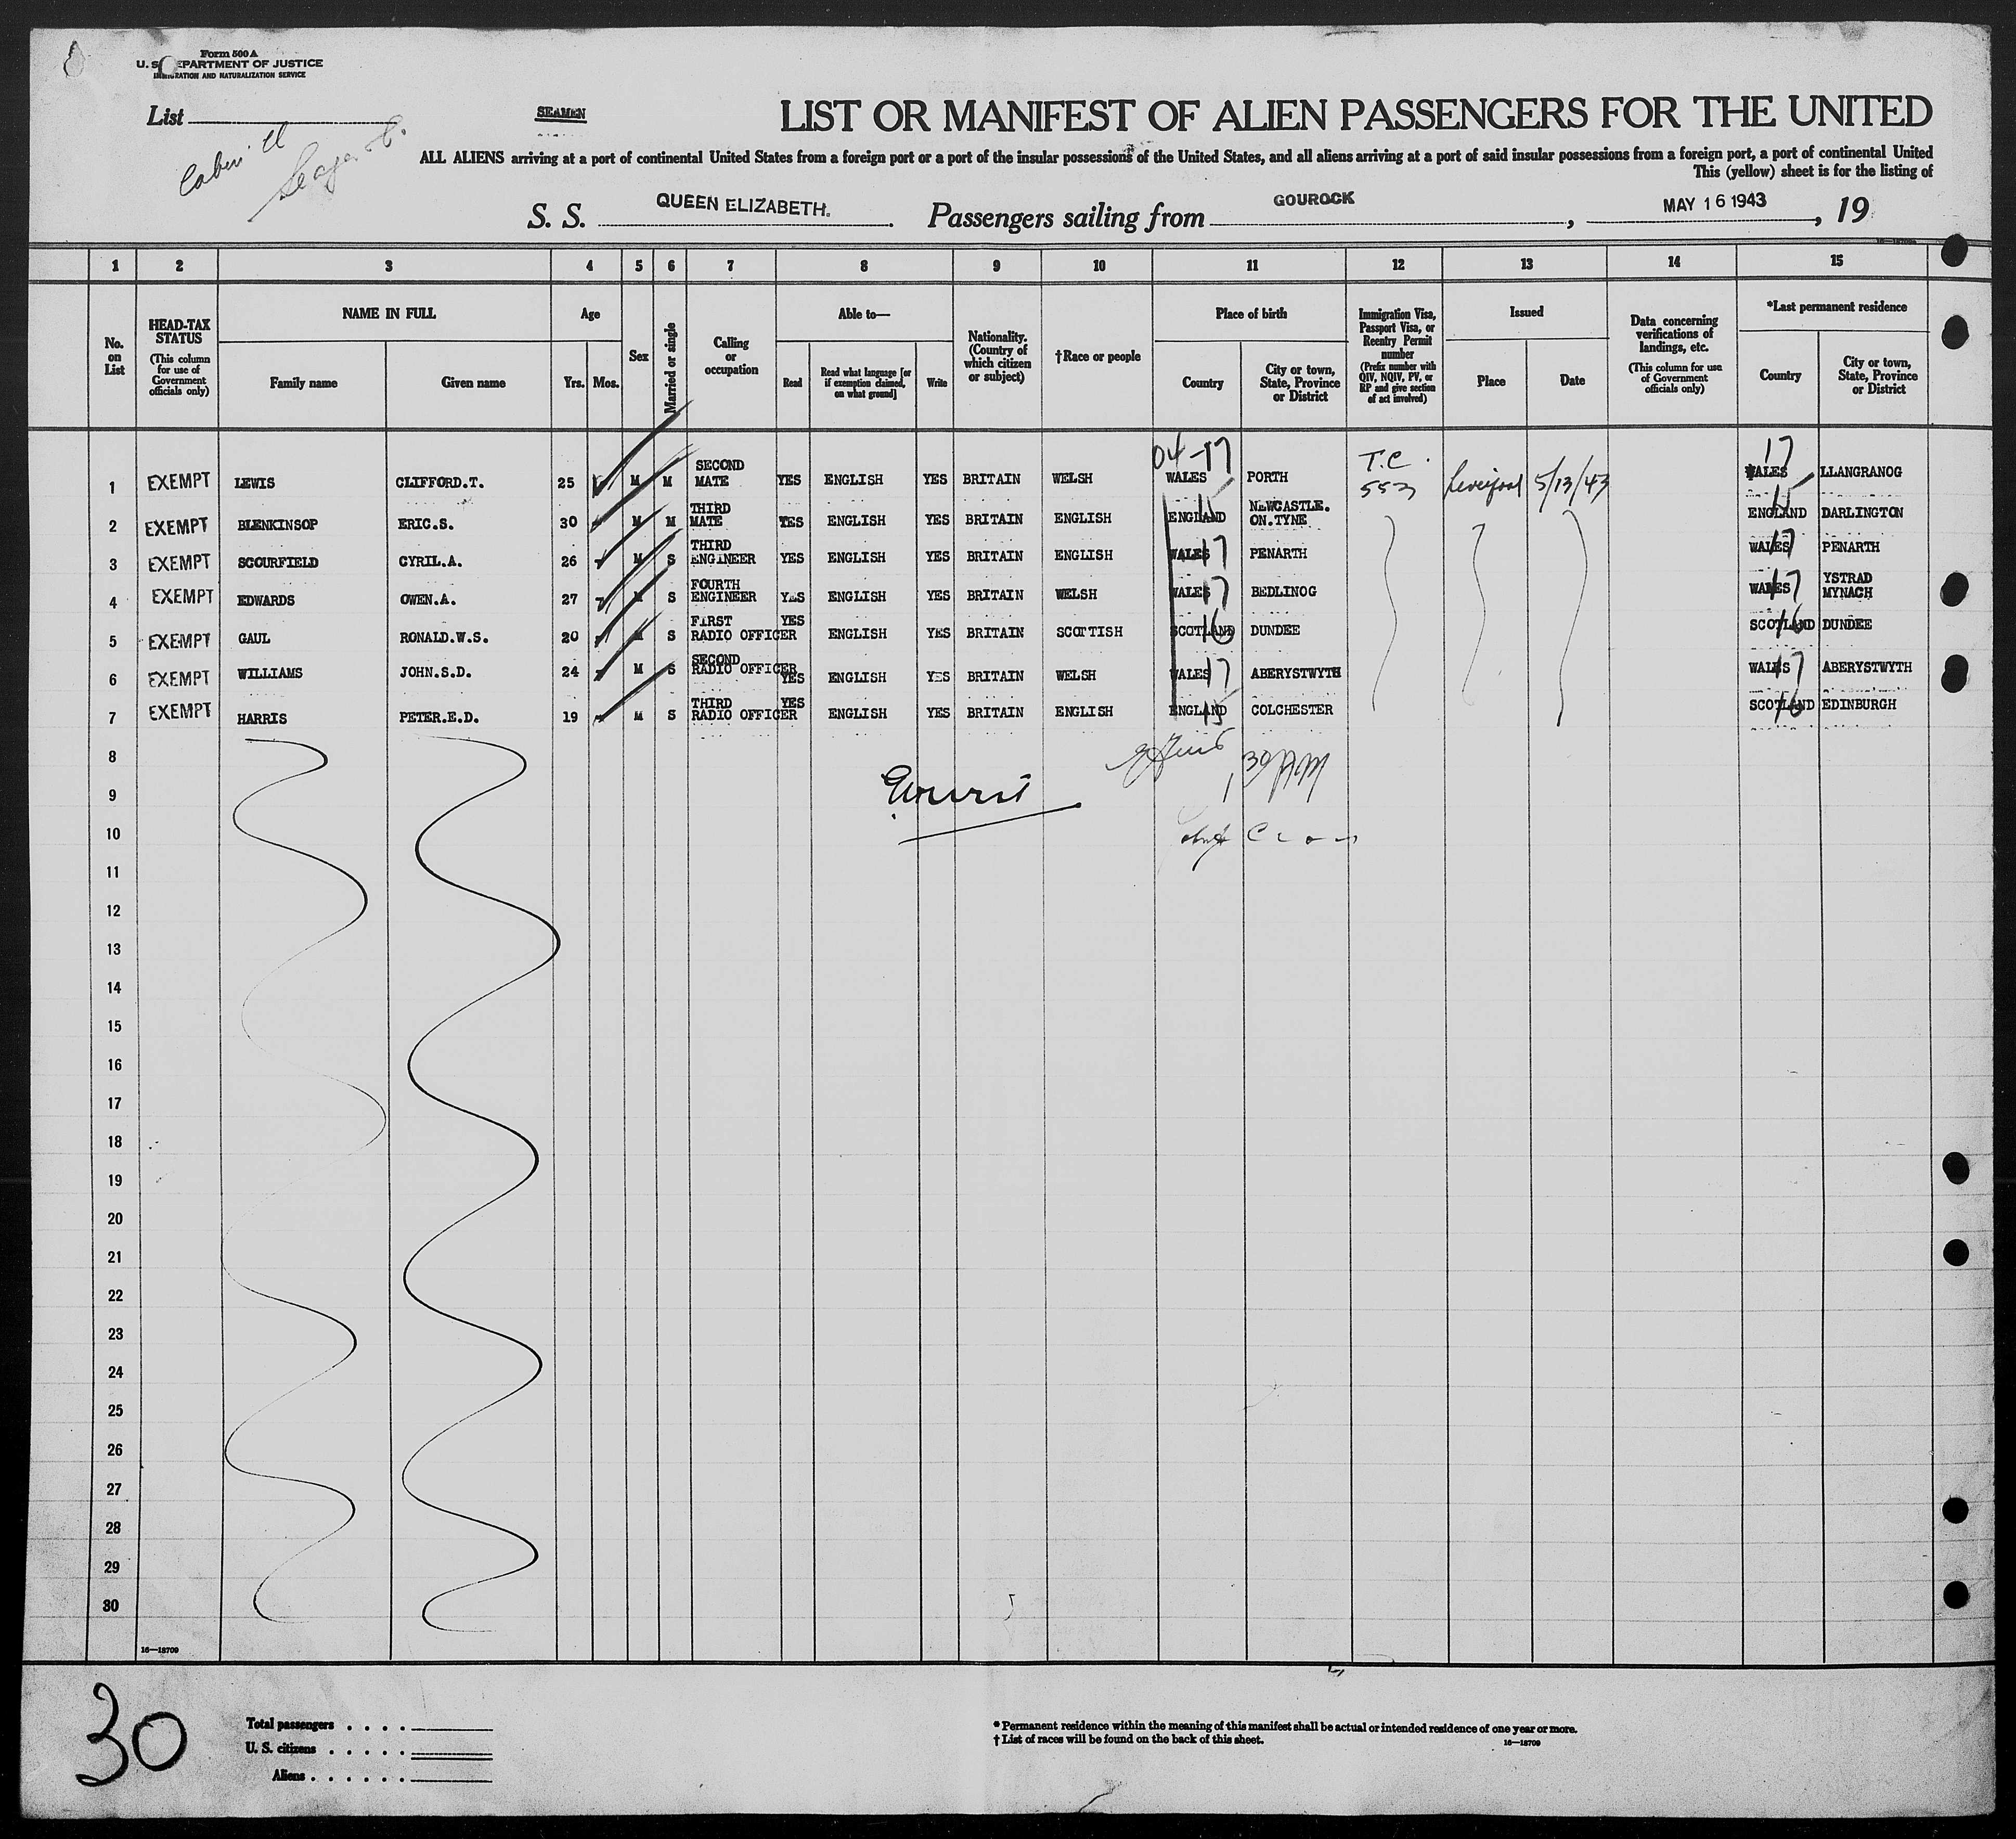 Form 500 A
U. S. DEPARTMENT OF JUSTICE
IMMIGRATION AND NATURALIZATION SERVICE
List
SEAMEN
LIST OR MANIFEST OF ALIEN PASSENGERS FOR THE UNITED
ALL ALIENS arriving at a port of continental United States from a foreign port or a port of the insular possessions of the United States, and all aliens arriving at a port of said insular possessions from a foreign port, a port of continental United
This (yellow) sheet is for the listing of
S. S. QUEEN ELIZABETH. Passengers sailing from GOUROCK, MAY 16 1943, 19
1 2 3 4 5 6 7 8 9 10 11 12 13 14 15
No. on List
HEAD-TAX STATUS (This column for use of Government officials only)
NAME IN FULL Family name Given name
Age Yrs. Mos.
Sex
Married or single
Calling or occupation
Able to— Read Read what language [or if exemption claimed, on what ground] Write
Nationality. (Country of which citizen or subject)
†Race or people
Place of birth Country City or town, State, Province or District
Immigration Visa, Passport Visa, or Reentry Permit number (Prefix number with QIV, NQIV, PV, or RP and give section of act involved)
Issued Place Date
Data concerning verifications of landings, etc. (This column for use of Government officials only)
*Last permanent residence Country City or town, State, Province or District
1 EXEMPT LEWIS CLIFFORD.T. 25 M M SECOND MATE YES ENGLISH YES BRITAIN WELSH 04-17 WALES PORTH T.C. 553 Liverpool 5/13/43 17 WALES LLANGRANOG
2 EXEMPT BLENKINSOP ERIC.S. 30 M M THIRD MATE YES ENGLISH YES BRITAIN ENGLISH ENGLAND 15 NEWCASTLE. ON.TYNE ENGLAND 15 DARLINGTON
3 EXEMPT SCOURFIELD CYRIL.A. 26 M S THIRD ENGINEER YES ENGLISH YES BRITAIN ENGLISH WALES 17 PENARTH WALES 17 PENARTH
4 EXEMPT EDWARDS OWEN.A. 27 M S FOURTH ENGINEER YES ENGLISH YES BRITAIN WELSH WALES 17 BEDLINOG WALES 17 YSTRAD MYNACH
5 EXEMPT GAUL RONALD.W.S. 20 M S FIRST RADIO OFFICER YES ENGLISH YES BRITAIN SCOTTISH SCOTLAND 16 DUNDEE SCOTLAND 16 DUNDEE
6 EXEMPT WILLIAMS JOHN.S.D. 24 M S SECOND RADIO OFFICER YES ENGLISH YES BRITAIN WELSH WALES 17 ABERYSTWYTH WALES 17 ABERYSTWYTH
7 EXEMPT HARRIS PETER.E.D. 19 M S THIRD RADIO OFFICER YES ENGLISH YES BRITAIN ENGLISH ENGLAND 15 COLCHESTER SCOTLAND 16 EDINBURGH
8
9
10
11
12
13
14
15
16
17
18
19
20
21
22
23
24
25
26
27
28
29
30
16—18709
30
Total passengers . . . .
U. S. citizens . . . . .
Aliens . . . . . .
* Permanent residence within the meaning of this manifest shall be actual or intended residence of one year or more.
† List of races will be found on the back of this sheet.
16—18709